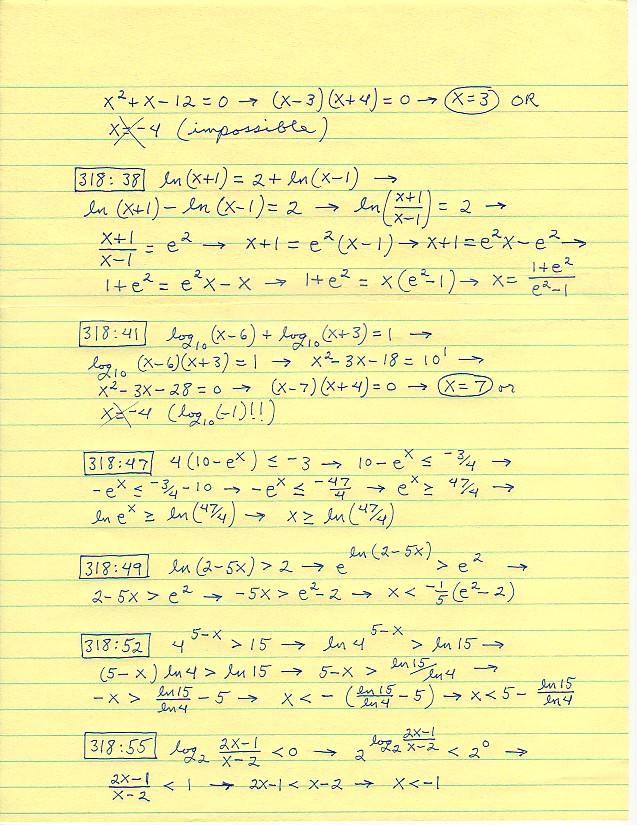 x² + x - 12 = 0 → (x-3)(x+4) = 0 → x=3 OR
x=-4 (impossible)
318:38 ln(x+1) = 2 + ln(x-1) →
ln(x+1) - ln(x-1) = 2 → ln((x+1)/(x-1)) = 2 →
(x+1)/(x-1) = e² → x+1 = e²(x-1) → x+1 = e²x - e² →
1+e² = e²x - x → 1+e² = x(e²-1) → x = (1+e²)/(e²-1)
318:41 log₁₀(x-6) + log₁₀(x+3) = 1 →
log₁₀(x-6)(x+3) = 1 → x²-3x-18 = 10¹ →
x²-3x-28 = 0 → (x-7)(x+4) = 0 → x=7 or
x=-4 (log₁₀(-1)!!)
318:47 4(10-eˣ) ≤ -3 → 10-eˣ ≤ -3/4 →
-eˣ ≤ -3/4 - 10 → -eˣ ≤ -47/4 → eˣ ≥ 47/4 →
ln eˣ ≥ ln(47/4) → x ≥ ln(47/4)
318:49 ln(2-5x) > 2 → e^(ln(2-5x)) > e² →
2-5x > e² → -5x > e²-2 → x < -1/5(e²-2)
318:52 4^(5-x) > 15 → ln 4^(5-x) > ln 15 →
(5-x) ln 4 > ln 15 → 5-x > ln15/ln4 →
-x > ln15/ln4 - 5 → x < -(ln15/ln4 - 5) → x < 5 - ln15/ln4
318:55 log₂ (2x-1)/(x-2) < 0 → 2^(log₂ (2x-1)/(x-2)) < 2⁰ →
(2x-1)/(x-2) < 1 → 2x-1 < x-2 → x < -1